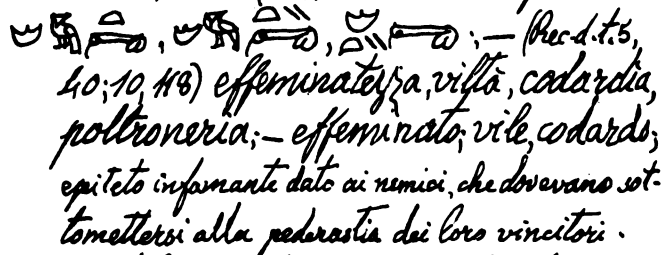 𓎡𓅓𓏏𓂺, 𓎡𓅓𓏏𓏭𓂺, 𓎡𓏏𓏭𓂺; — (Rec. d. t. 5,
40; 10, 118) effeminatezza, viltà, codardia,
poltroneria; — effeminato; vile, codardo;
epiteto infamante dato ai nemici, che dovevano sot-
tomettersi alla pederastia dei loro vincitori.